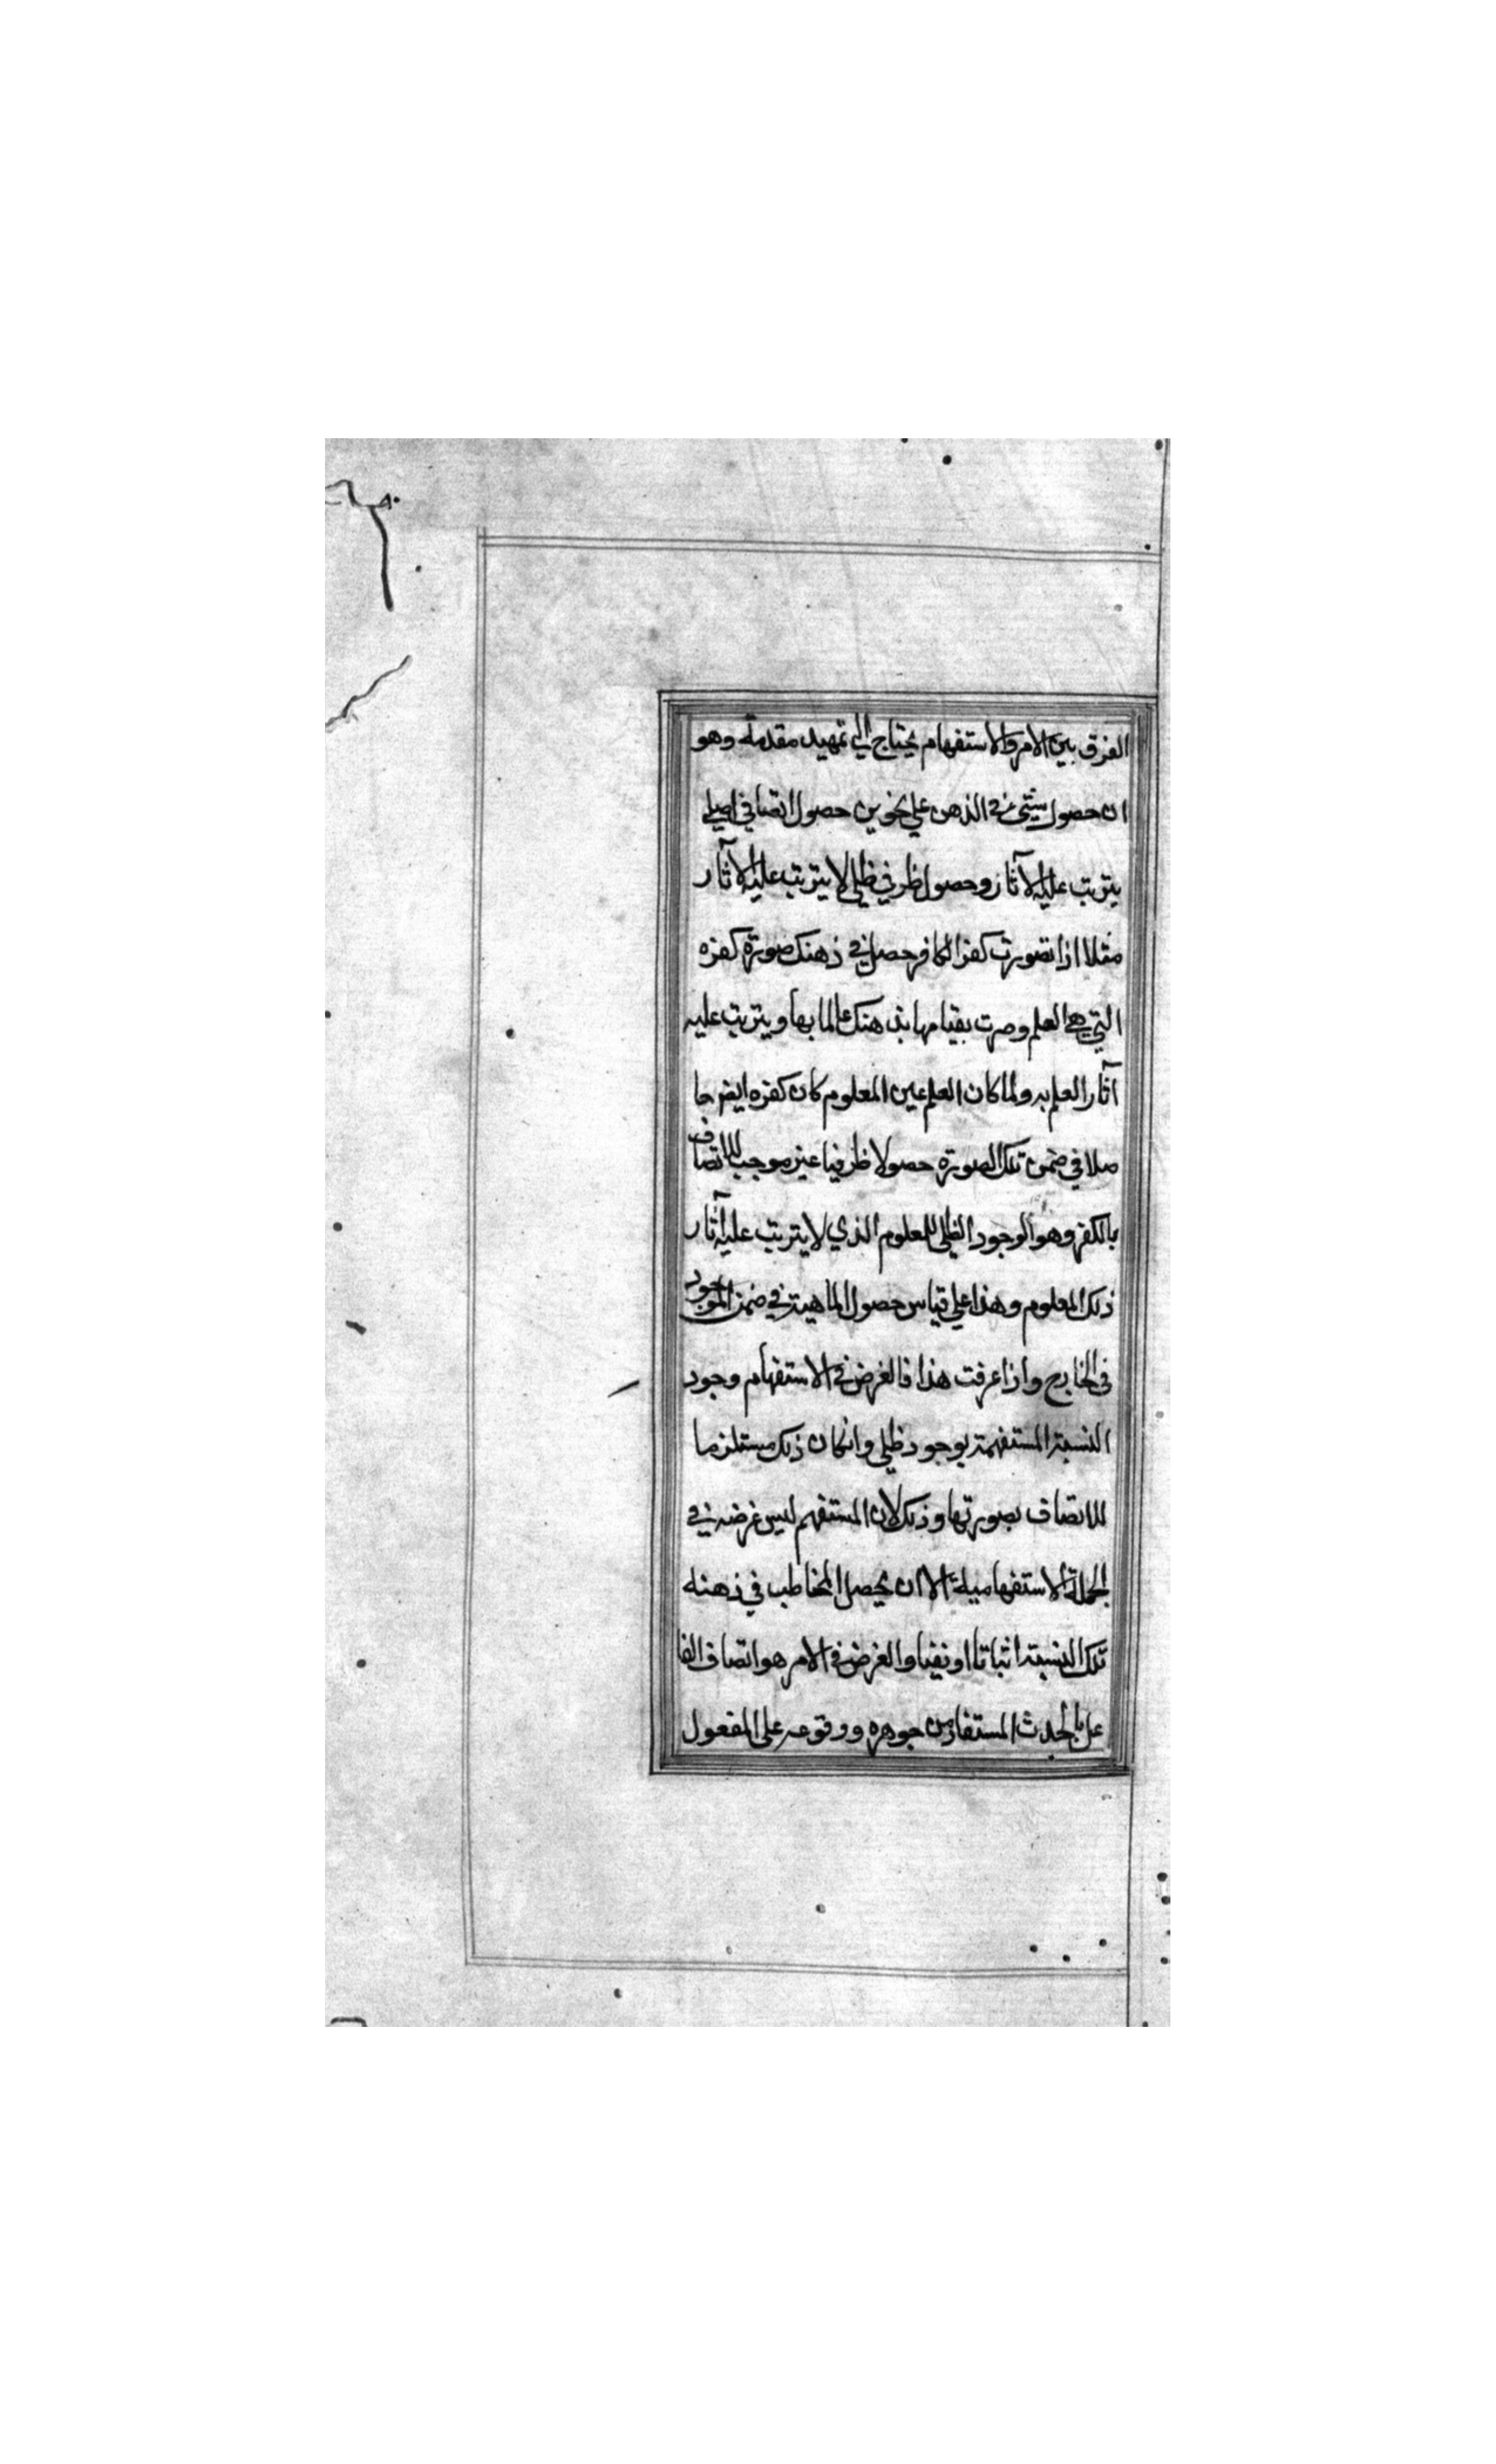 الفرق بين الامر والاستفهام يحتاج الي تمهيد مقدمة وهو
ان حصول شيئ في الذهن علي نحوين حصول اتصافي اصلي
يترتب عليه الآثار وحصول ظرفي ظلي لا يترتب عليه الآثار
مثلا اذا تصورت كفر الكافر حصل في ذهنك صورة كفره
التي هي العلم وصرت بقيامها بذهنك عالما بها ويترتب عليه
آثار العلم به ولما كان العلم عين المعلوم كان كفره ايضا حا
صلا في ضمن تلك الصورة حصولا ظرفيا غير موجب للاتصاف
بالكفر وهو الوجود الظلي للمعلوم الذي لا يترتب عليه آثار
ذلك المعلوم وهذا علي قياس حصول الماهية في ضمن الموجود
في الخارج واذا عرفت هذا فالغرض في الاستفهام وجود
النسبة المستفهمة بوجود ظلي وانكان ذلك مستلزما
للاتصاف بصورتها وذلك لان المستفهم ليس غرضه في
الجملة الاستفهامية الا ان يحصل المخاطب في ذهنه
تلك النسبة اثباتا او نفيا والغرض في الامر هو اتصاف الفا
عل بالحدث المستفاد من جوهره ووقوعه علي المفعول